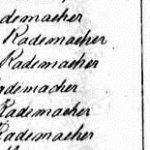 ademacher
Rademacher
Rademacher
ademacher
Rademacher
Rademacher